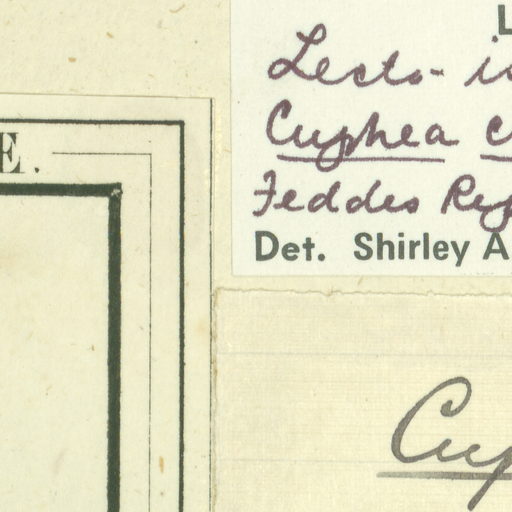 L
Lecto-is
Cuphea c
Feddes Rep
Det. Shirley A
E.
Cup